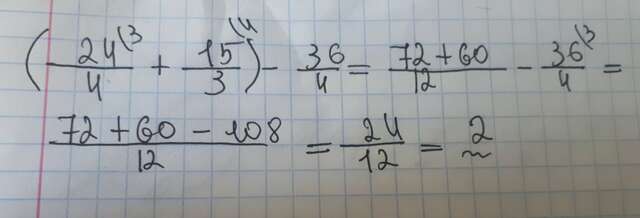 (24\3/4 + 15\4/3) - 36/4 = 72+60/12 - 36\3/4 =
72+60-108/12 = 24/12 = 2